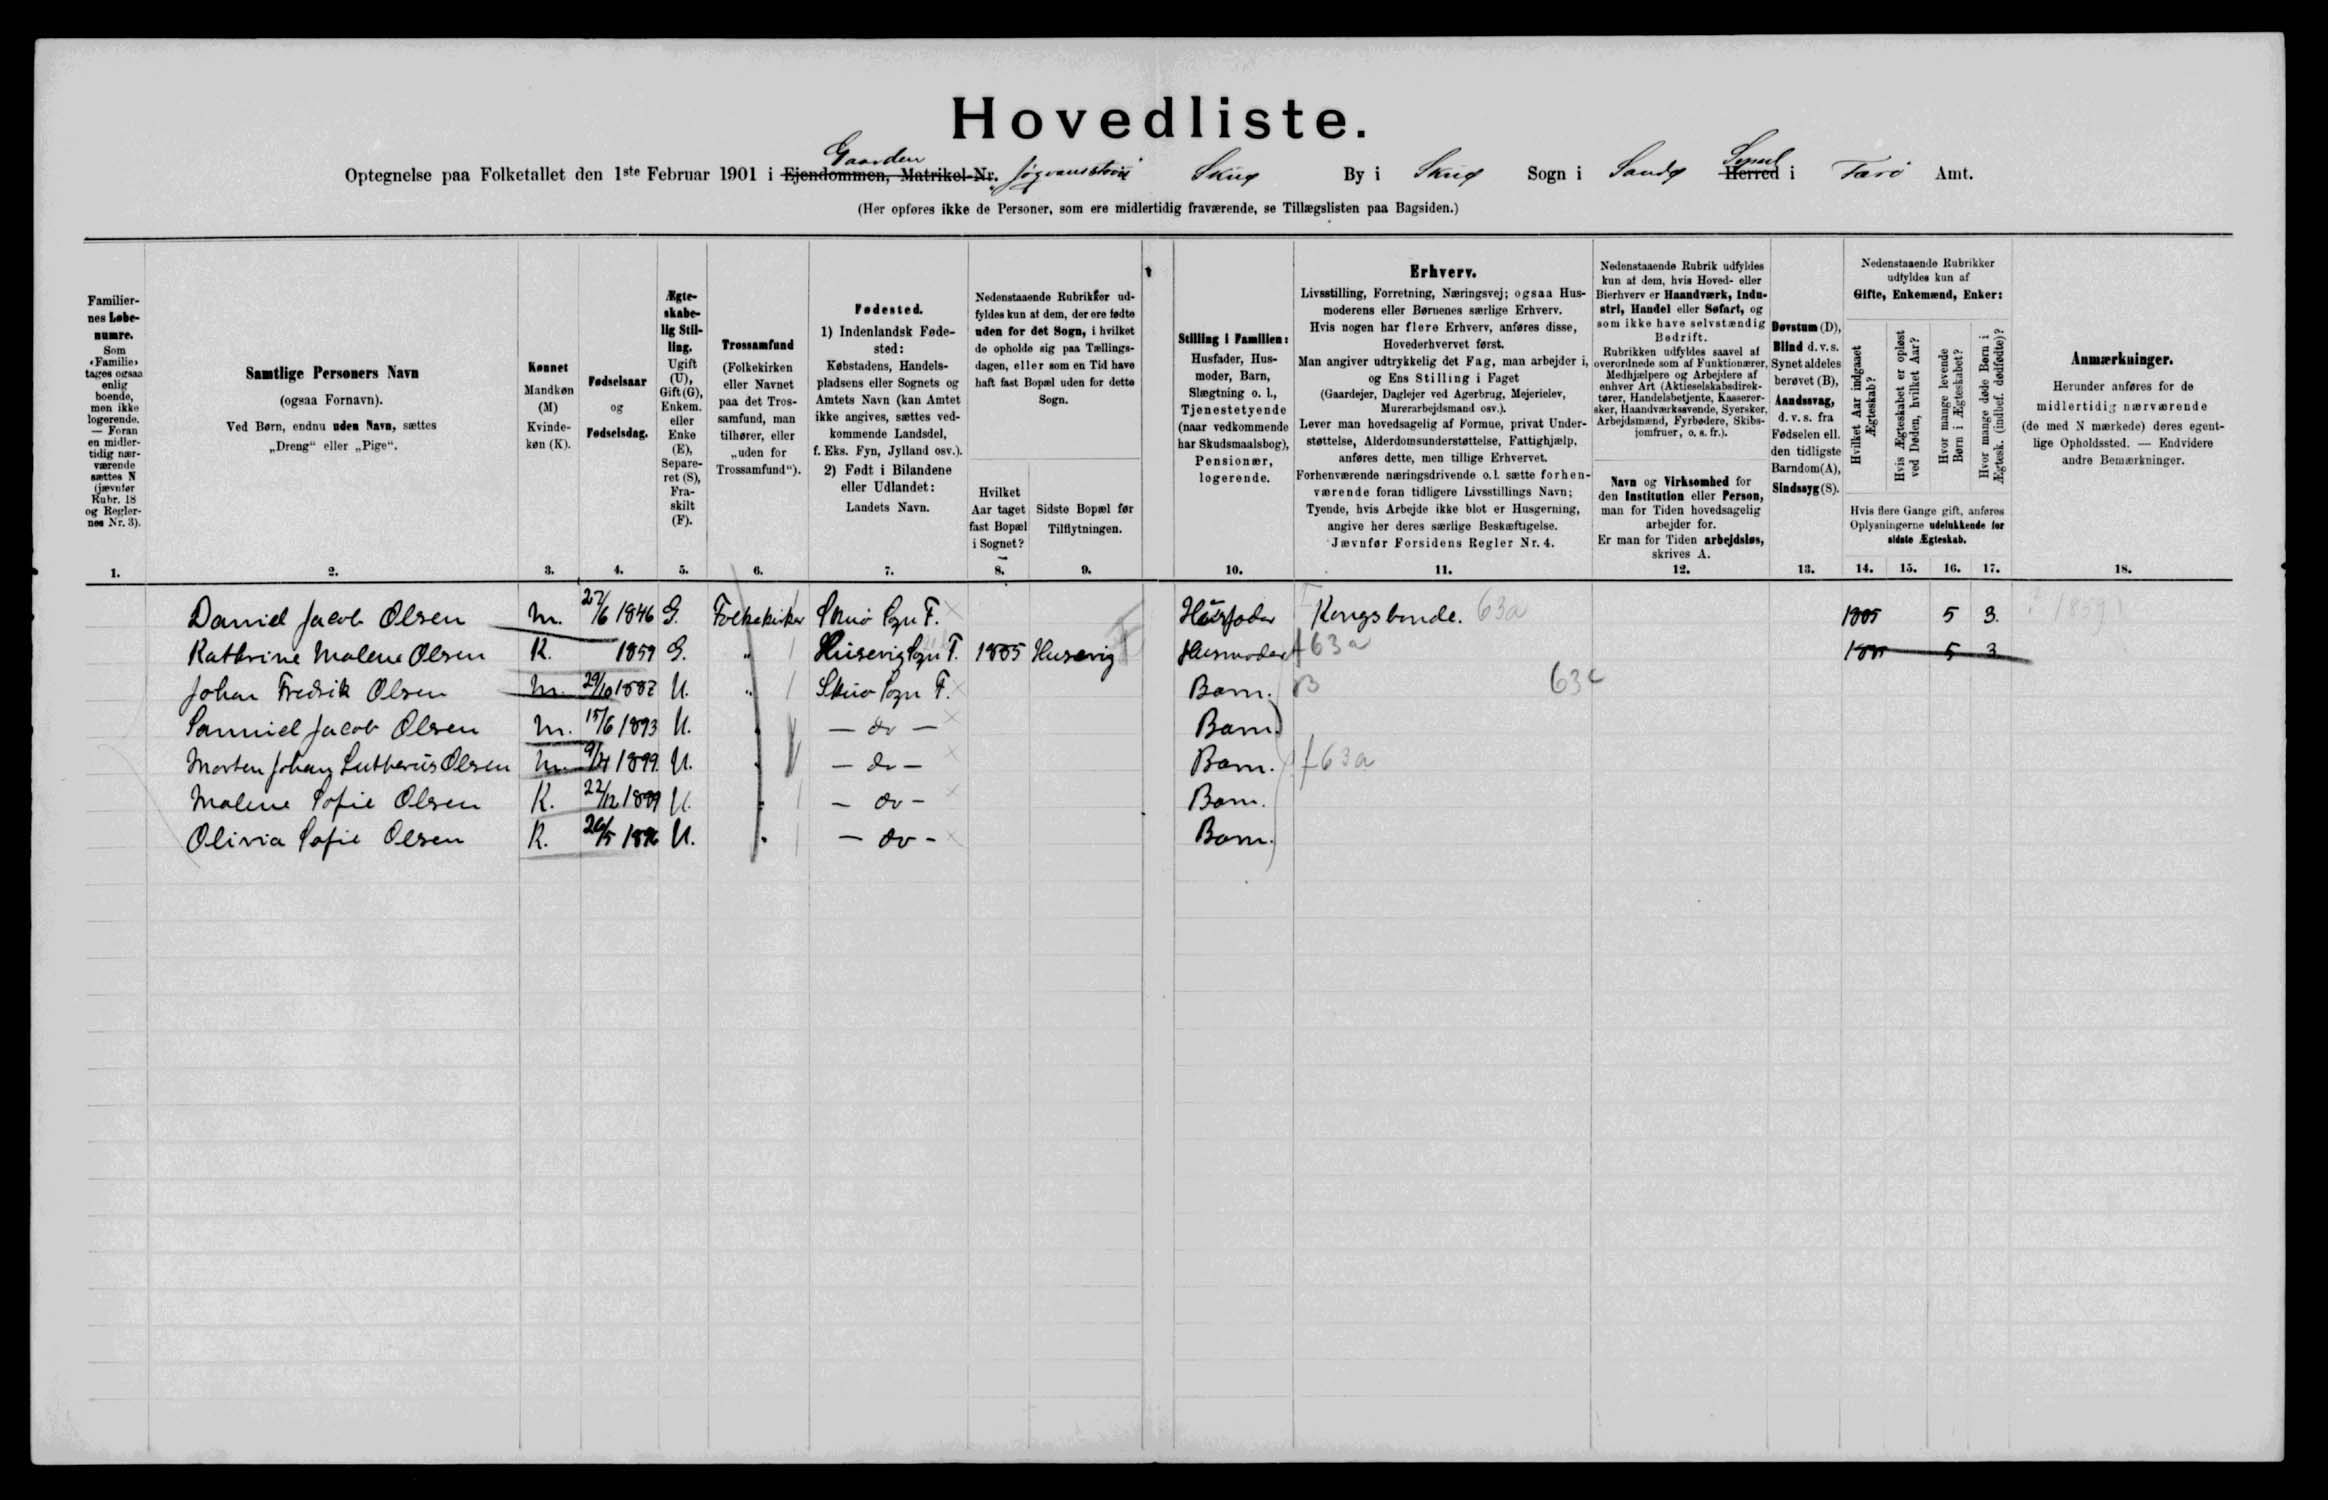 Hovedliste.
Gaarden
Optegnelse paa Folketallet den 1ste Februar 1901 i Ejendommen, Matrikel-Nr. Skuø By i Skuø Sogn i Sandø Syssel Herred i Færø Amt.
(Her opføres ikke de Personer, som ere midlertidig fraværende, se Tillægslisten paa Bagsiden.)
Familiernes Løbenumre.
Som «Familie» tages ogsaa enlig boende, men ikke logerende. — Foran en midlertidig nærværende sættes N (jævnfør Rubr. 18 og Reglernes Nr. 3).
Samtlige Personers Navn
(ogsaa Fornavn).
Ved Børn, endnu uden Navn, sættes
„Dreng“ eller „Pige“.
Kønnet
Mandkøn (M)
Kvindekøn (K).
Fødselsaar
og
Fødselsdag.
Ægteskabelig Stilling.
Ugift (U), Gift (G), Enkem. eller Enke (E), Separeret (S), Fraskilt (F).
Trossamfund
(Folkekirken eller Navnet paa det Trossamfund, man tilhører, eller „uden for Trossamfund“).
Fødested.
1) Indenlandsk Fødested:
Købstadens, Handelspladsens eller Sognets og Amtets Navn (kan Amtet ikke angives, sættes vedkommende Landsdel, f. Eks. Fyn, Jylland osv.).
2) Født i Bilandene eller Udlandet:
Landets Navn.
Nedenstaaende Rubrikker udfyldes kun af dem, der ere fødte uden for det Sogn, i hvilket de opholde sig paa Tællingsdagen, eller som en Tid have haft fast Bopæl uden for dette Sogn.
Hvilket Aar taget fast Bopæl i Sognet?
Sidste Bopæl før Tilflytningen.
Stilling i Familien:
Husfader, Husmoder, Barn, Slægtning o. l., Tjenestetyende (naar vedkommende har Skudsmaalsbog), Pensionær, logerende.
Erhverv.
Livsstilling, Forretning, Næringsvej; ogsaa Husmoderens eller Børnenes særlige Erhverv.
Hvis nogen har flere Erhverv, anføres disse, Hovederhvervet først.
Man angiver udtrykkelig det Fag, man arbejder i, og Ens Stilling i Faget
(Gaardejer, Daglejer ved Agerbrug, Mejerielev, Murerarbejdsmand osv.).
Lever man hovedsagelig af Formue, privat Understøttelse, Alderdomsunderstøttelse, Fattighjælp, anføres dette, men tillige Erhvervet.
Forhenværende næringsdrivende o. l. sætte forhenværende foran tidligere Livsstillings Navn;
Tyende, hvis Arbejde ikke blot er Husgerning, angive her deres særlige Beskæftigelse.
Jævnfør Forsidens Regler Nr. 4.
Nedenstaaende Rubrik udfyldes kun af dem, hvis Hoved- eller Bierhverv er Haandværk, Industri, Handel eller Søfart, og som ikke have selvstændig Bedrift.
Rubrikken udfyldes saavel af overordnede som af Funktionærer, Medhjælpere og Arbejdere af enhver Art (Aktieselskabsdirektører, Handelsbetjente, Kasserersker, Haandværkssvende, Syersker, Arbejdsmænd, Fyrbødere, Skibsjomfruer, o. s. fr.).
Navn og Virksomhed for den Institution eller Person, man for Tiden hovedsagelig arbejder for.
Er man for Tiden arbejdsløs, skrives A.
Døvstum (D), Blind d. v. s. Synet aldeles berøvet (B), Aandssvag, d. v. s. fra Fødselen ell. den tidligste Barndom (A), Sindssyg (S).
Nedenstaaende Rubrikker udfyldes kun af
Gifte, Enkemænd, Enker:
Hvilket Aar indgaaet Ægteskab?
Hvis Ægteskabet er opløst ved Døden, hvilket Aar?
Hvor mange levende Børn i Ægteskabet?
Hvor mange døde Børn i Ægtesk. (indbef. dødfødte)?
Hvis flere Gange gift, anføres Oplysningerne udelukkende for sidste Ægteskab.
Anmærkninger.
Herunder anføres for de midlertidig nærværende (de med N mærkede) deres egentlige Opholdssted. — Endvidere andre Bemærkninger.
1. 2. 3. 4. 5. 6. 7. 8. 9. 10. 11. 12. 13. 14. 15. 16. 17. 18.
Daniel Jacob Olsen M. 27/6 1846 G. Folkekirken Skuø Sogn F. Husfader Kongsbonde. 63a 1885 5 3. 1859
Kathrine Malene Olsen K. 1859 G. " Husevig Sogn F. 1885 Husevig Husmoder f 63a 5 3
Johan Fredrik Olsen M. 29/10 1887 U. " Skuø Sogn F. Barn. B 63c
Samuel Jacob Olsen M. 15/6 1893 U. " — do — Barn.
Morten Johan Lutherus Olsen M. 1899 U. " — do — Barn. f 63a
Malene Sofie Olsen K. 22/12 1889 U. " — do — Barn.
Olivia Sofie Olsen K. 26/5 1896 U. " — do — Barn.